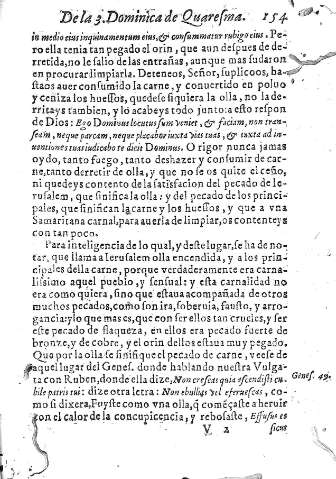 De la 3. Dominica de Quaresma. 154
in medio eius inquinamentum eius, & consummatur rubigo eius. Pe-
ro ella tenia tan pegado el orin, que aun despues de de-
rretida, no le salio de las entrañas, aunque mas sudaron
en procurar limpiarla. Deteneos, Señor, suplicoos, ba-
staos auer consumido la carne, y conuertido en poluo
y ceniza los huessos, quedese siquiera la olla, no la de-
rritays tambien, y lo acabeys todo junto: a esto respon
de Dios: Ego Dominus locutus sum veniet, & faciam, non tran-
seam, neque parcam, neque placabor iuxta vias tuas, & iuxta ad in-
uentiones tuas iudicabo te dicit Dominus. O rigor nunca jamas
oydo, tanto fuego, tanto deshazer y consumir de car-
ne, tanto derretir de olla, y que no se os quite el ceño,
ni quedeys contento de la satisfacion del pecado de Ie-
rusalem, que sinifica la olla: y del pecado de los princi-
pales, que sinifican la carne y los huessos, y que a vna
Samaritana carnal, para auerla de limpiar, os contenteys
con tan poco.
Para inteligencia de lo qual, y deste lugar, se ha de no-
tar, que llama a Ierusalem olla encendida, y a los prin-
cipales della carne, porque verdaderamente era carna-
lissimo aquel pueblo, y sensual: y esta carnalidad no
era como quiera, sino que estaua acompañada de otros
muchos pecados, como son ira, soberuia, fausto, y arro-
gancia: y lo que mas es, que con ser ellos tan crueles, y ser
este pecado de flaqueza, en ellos era pecado fuerte de
bronze, y de cobre, y el orin dellos estaua muy pegado.
Que por la olla se sinifique el pecado de carne, veese de
aquel lugar del Genes. donde hablando nuestra Vulga-
ta con Ruben, donde ella dize, Non crescas quia ascendisti cu-
bile patris tui: dize otra letra: Non ebullias vel eferuescas, co-
mo si dixera, Fuyste como vna olla, q̃ começaste a heruir
con el calor de la concupicencia, y rebosaste, Effusus es
Genes. 49.
V 2 sicus